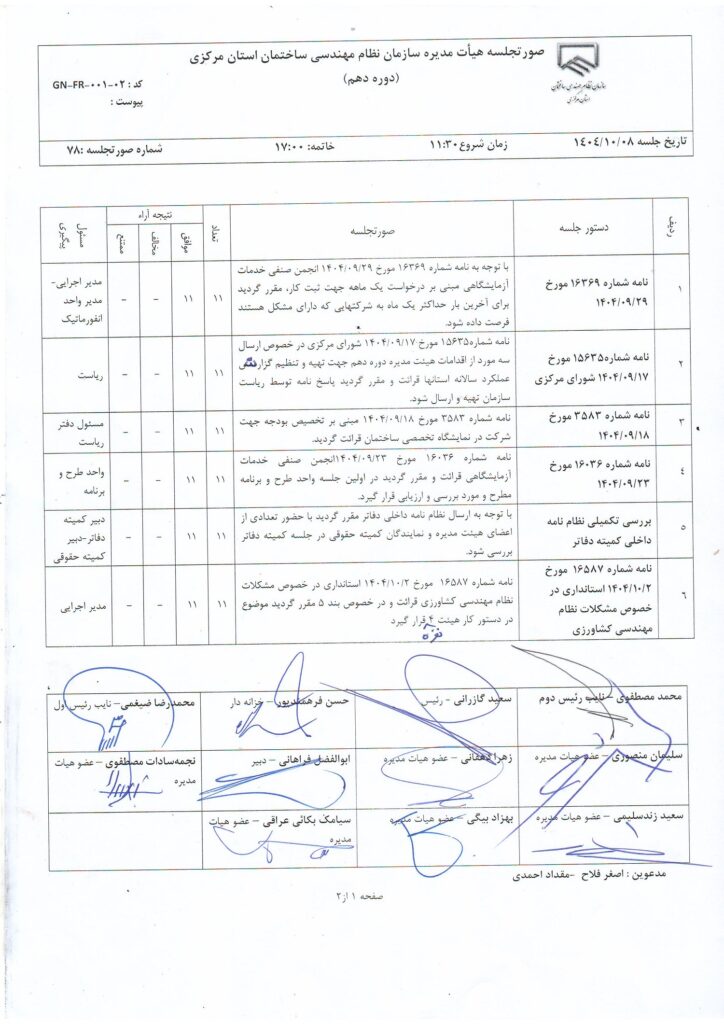 صورتجلسه هیأت مدیره سازمان نظام مهندسی ساختمان استان مرکزی
(دوره دهم)
سازمان نظام مهندسی ساختمان
استان مرکزی
کد : GN-FR-۰۰۱-۰۲
پیوست :
تاریخ جلسه ۱۴۰۴/۱۰/۰۸ زمان شروع ۱۱:۳۰ خاتمه: ۱۷:۰۰ شماره صورتجلسه :۷۸
ردیف دستور جلسه صورتجلسه تعداد نتیجه آراء مسئول پیگیری
موافق مخالف ممتنع
۱
نامه شماره ۱۶۳۶۹ مورخ
۱۴۰۴/۰۹/۲۹
با توجه به نامه شماره ۱۶۳۶۹ مورخ ۱۴۰۴/۰۹/۲۹ انجمن صنفی خدمات
آزمایشگاهی مبنی بر درخواست یک ماهه جهت ثبت کار، مقرر گردید
برای آخرین بار حداکثر یک ماه به شرکتهایی که دارای مشکل هستند
فرصت داده شود.
۱۱ ۱۱ – –
مدیر اجرایی-
مدیر واحد
انفورماتیک
۲
نامه شماره۱۵۶۳۵ مورخ
۱۴۰۴/۰۹/۱۷ شورای مرکزی
نامه شماره۱۵۶۳۵ مورخ ۱۴۰۴/۰۹/۱۷ شورای مرکزی در خصوص ارسال
سه مورد از اقدامات هیئت مدیره دوره دهم جهت تهیه و تنظیم گزارش
عملکرد سالانه استانها قرائت و مقرر گردید پاسخ نامه توسط ریاست
سازمان تهیه و ارسال شود.
۱۱ ۱۱ – –
ریاست
۳
نامه شماره ۳۵۸۳ مورخ
۱۴۰۴/۰۹/۱۸
نامه شماره ۳۵۸۳ مورخ ۱۴۰۴/۰۹/۱۸ مبنی بر تخصیص بودجه جهت
شرکت در نمایشگاه تخصصی ساختمان قرائت گردید.
۱۱ ۱۱ – –
مسئول دفتر
ریاست
۴
نامه شماره ۱۶۰۳۶ مورخ
۱۴۰۴/۰۹/۲۳
نامه شماره ۱۶۰۳۶ مورخ ۱۴۰۴/۰۹/۲۳انجمن صنفی خدمات
آزمایشگاهی قرائت و مقرر گردید در اولین جلسه واحد طرح و برنامه
مطرح و مورد بررسی و ارزیابی قرار گیرد.
۱۱ ۱۱ – –
واحد طرح و
برنامه
۵
بررسی تکمیلی نظام نامه
داخلی کمیته دفاتر
با توجه به ارسال نظام نامه داخلی دفاتر مقرر گردید با حضور تعدادی از
اعضای هیئت مدیره و نمایندگان کمیته حقوقی در جلسه کمیته دفاتر
بررسی شود.
۱۱ ۱۱ – –
دبیر کمیته
دفاتر-دبیر
کمیته حقوقی
۶
نامه شماره ۱۶۵۸۷ مورخ
۱۴۰۴/۱۰/۲ استانداری در
خصوص مشکلات نظام
مهندسی کشاورزی
نامه شماره ۱۶۵۸۷ مورخ ۱۴۰۴/۱۰/۲ استانداری در خصوص مشکلات
نظام مهندسی کشاورزی قرائت و در خصوص بند ۵ مقرر گردید موضوع
در دستور کار هیئت ۴ نفره قرار گیرد
۱۱ ۱۱ – –
مدیر اجرایی
محمد مصطفوی – نایب رئیس دوم سعید گازرانی – رئیس حسن فرهمندپور – خزانه دار محمدرضا ضیغمی – نایب رئیس اول
سلیمان منصوری – عضو هیات مدیره زهرا دهقانی – عضو هیات مدیره ابوالفضل فراهانی – دبیر نجمه‌سادات مصطفوی – عضو هیات
مدیره
سعید زندسلیمی – عضو هیات مدیره بهزاد بیگی – عضو هیات مدیره سیامک بکائی عراقی – عضو هیات
مدیره
مدعوین : اصغر فلاح -مقداد احمدی
صفحه ۱ از۲